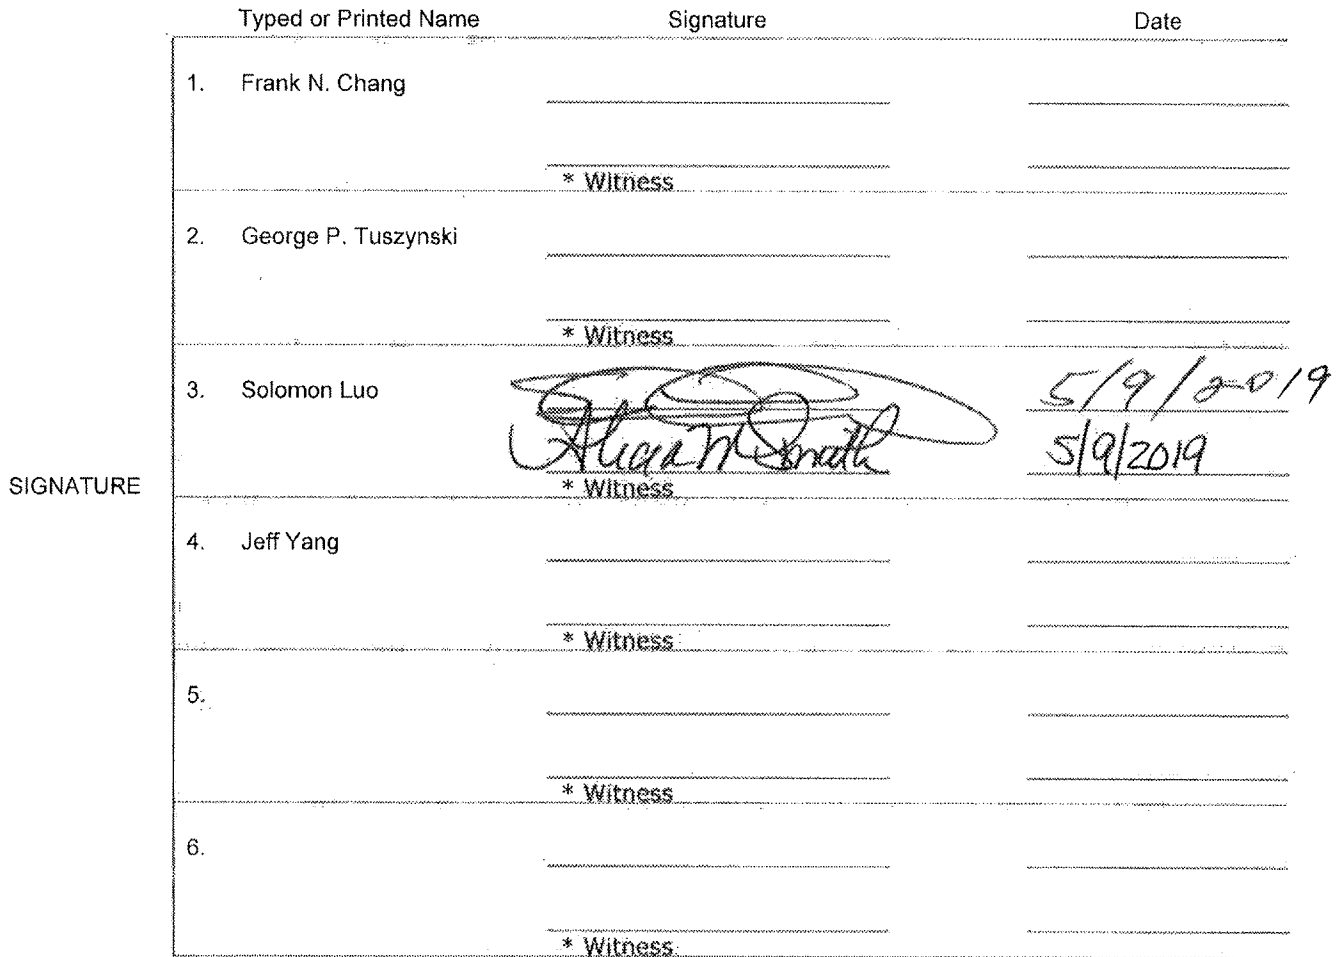 Typed or Printed Name Signature Date
1. Frank N. Chang
* Witness
2. George P. Tuszynski
* Witness
3. Solomon Luo 5/9/2019
Alicia M Smith 5/9/2019
* Witness
SIGNATURE
4. Jeff Yang
* Witness
5.
* Witness
6.
* Witness